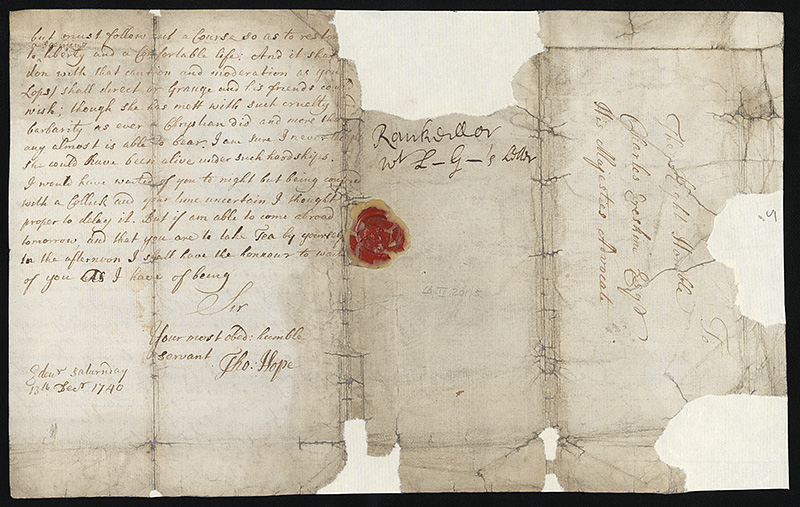 but must follow out a Course so as to rest
a person
to liberty and a Comfortable life. And it shall
don with that caution and moderation as your
Lops) shall direct or Grange and his friends cou
wish; though she has mett with such cruelty
barbarity as ever Christian did and more than
any almost is able to bear. I am sure I never
she could have been alive under such hardships.
I would have waited of you to night but being
with a Collick and your time uncertain I thought
proper to delay it. But if am able to come abroad
tomorrow, and that you are to take Tea by yourself
in the afternoon I shall have the honnour to wait
of you as I have of being
Sir
Your most obed: humble
servant Tho: Hope
Edr saturnday
13th Decr 1740
Rankillor
wt L–G–'s Letter
B.II.20/5
To
The Right Honble
Charles Ereskine Esqr
His Majesties Advocate
5